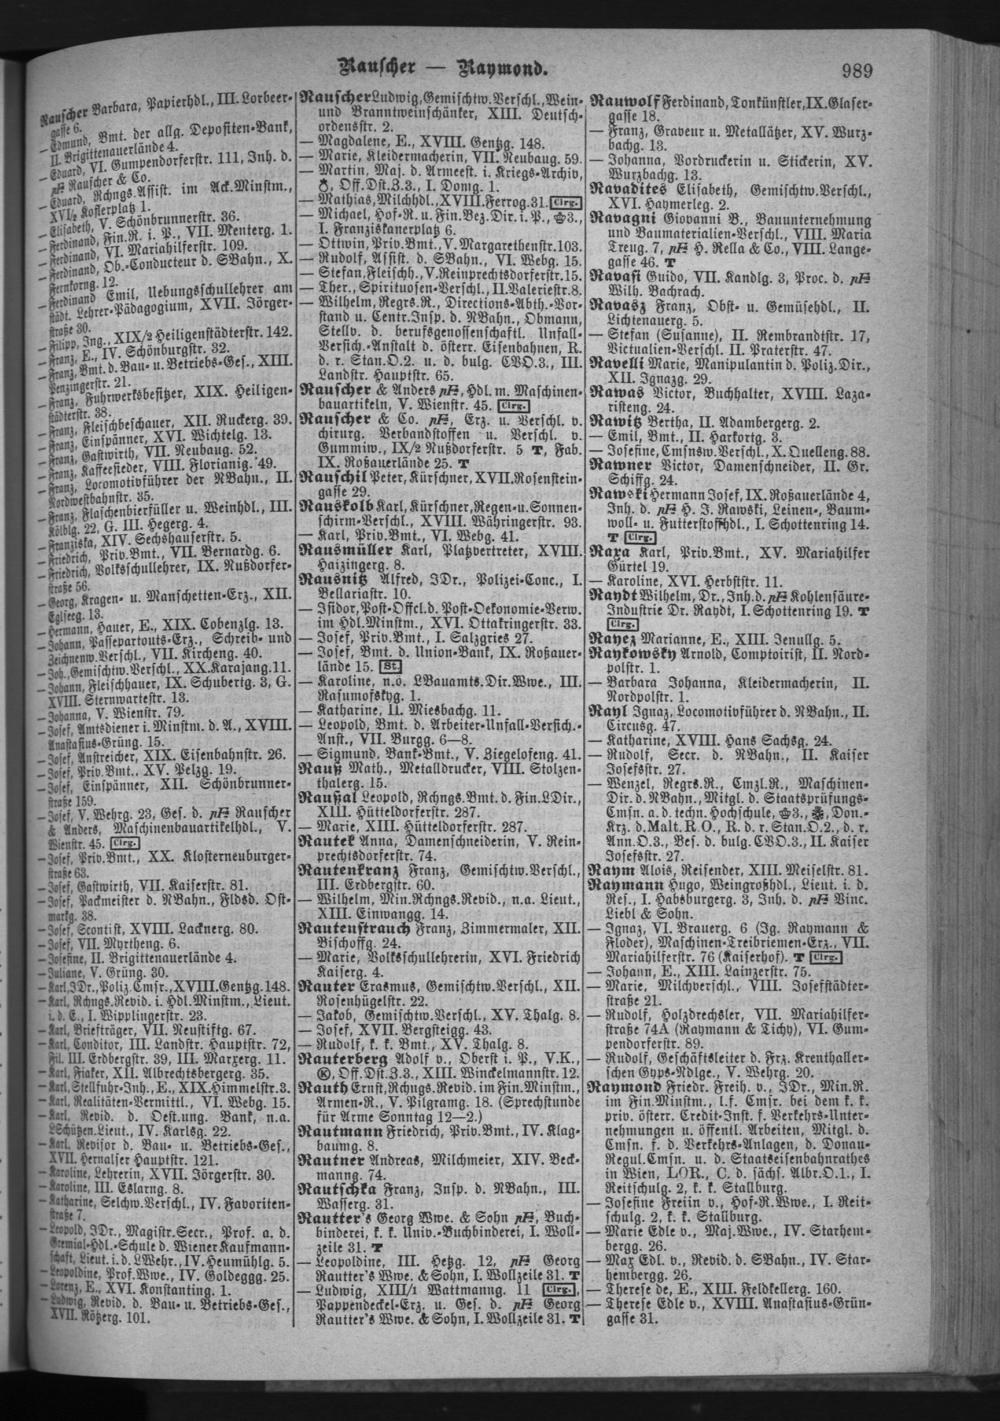 Rauscher — Raymond.
989
Rauscher Barbara, Papierhdl., III. Lorbeer-
gasse 6.
— Edmund, Bmt. der allg. Depositen-Bank,
II. Brigittenauerlände 4.
— Eduard, VI. Gumpendorferstr. 111, Inh. d.
Rauscher & Co.
— Eduard, Rchngs.Assist. im Ack.Minstm.,
XVI/2 Koflerplatz 1.
— Elisabeth, V. Schönbrunnerstr. 36.
— Ferdinand, Fin.R. i. P., VII. Menterg. 1.
— Ferdinand, VI. Mariahilferstr. 109.
— Ferdinand, Ob.-Conducteur d. SBahn., X.
Fernkorng. 12.
— Ferdinand Emil, Uebungsschullehrer am
städt. Lehrer-Pädagogium, XVII. Jörger-
straße 30.
— Filipp, Ing., XIX/2 Heiligenstädterstr. 142.
— Franz, E., IV. Schönburgstr. 32.
— Franz, Bmt. d. Bau- u. Betriebs-Ges., XIII.
Penzingerstr. 21.
— Franz, Fuhrwerksbesitzer, XIX. Heiligen-
städterstr. 38.
— Franz, Fleischbeschauer, XII. Ruckerg. 39.
— Franz, Einspänner, XVI. Wichtelg. 13.
— Franz, Gastwirth, VII. Neubaug. 52.
— Franz, Kaffeesieder, VIII. Florianig. 49.
— Franz, Locomotivführer der NBahn., II.
Nordwestbahnstr. 35.
— Franz, Flaschenbierfüller u. Weinhdl., III.
Kölblg. 22, G. III. Hegerg. 4.
— Franziska, XIV. Sechshauserstr. 5.
— Friedrich, Priv.Bmt., VII. Bernardg. 6.
— Friedrich, Volksschullehrer, IX. Nußdorfer-
straße 56.
— Georg, Kragen- u. Manschetten-Erz., XII.
Eglseeg. 13.
— Hermann, Hauer, E., XIX. Cobenzlg. 13.
— Johann, Passepartouts-Erz., Schreib- und
Zeichnenw.Verschl., VII. Kircheng. 40.
— Joh., Gemischtw.Verschl., XX. Karajang. 11.
— Johann, Fleischhauer, IX. Schubertg. 3, G.
XVIII. Sternwartestr. 13.
— Johanna, V. Wienstr. 79.
— Josef, Amtsdiener i. Minstm. d. A., XVIII.
Anastasius-Grüng. 15.
— Josef, Anstreicher, XIX. Eisenbahnstr. 26.
— Josef, Priv.Bmt., XV. Pelzg. 19.
— Josef, Einspänner, XII. Schönbrunner-
straße 159.
— Josef, V. Wehrg. 23, Ges. d. Rauscher
& Anders, Maschinenbauartikelhdl., V.
Wienstr. 45. Clrg.
— Josef, Priv.Bmt., XX. Klosterneuburger-
straße 63.
— Josef, Gastwirth, VII. Kaiserstr. 81.
— Josef, Packmeister d. NBahn., Fldsd. Ost-
markg. 38.
— Josef, Scontist, XVIII. Lacknerg. 80.
— Josef, VII. Myrtheng. 6.
— Josefine, II. Brigittenauerlände 4.
— Juliane, V. Grüng. 30.
— Karl, JDr., Poliz.Cmsr., XVIII. Gentzg. 148.
— Karl, Rchngs.Revid. i. Hdl.Minstm., Lieut.
i. d. E., I. Wipplingerstr. 23.
— Karl, Briefträger, VII. Neustiftg. 67.
— Karl, Conditor, III. Landstr. Hauptstr. 72,
Fil. III. Erdbergstr. 39, III. Marxerg. 11.
— Karl, Fiaker, XII. Albrechtsbergerg. 35.
— Karl, Stellfuhr-Inh., E., XIX. Himmelstr. 3.
— Karl, Realitäten-Vermittl., VI. Webg. 15.
— Karl, Revid. d. Oest.ung. Bank, n.a.
LSchützen.Lieut., IV. Karlsg. 22.
— Karl, Revisor d. Bau- u. Betriebs-Ges.,
XVII. Hernalser Hauptstr. 121.
— Karoline, Lehrerin, XVII. Jörgerstr. 30.
— Karoline, III. Eslarng. 8.
— Katharine, Selchw.Verschl., IV. Favoriten-
straße 7.
— Leopold, JDr., Magistr.Secr., Prof. a. d.
Gremial-Hdl.-Schule d. Wiener Kaufmann-
schaft, Lieut. i. d. LWehr., IV. Heumühlg. 5.
— Leopoldine, Prof.Wwe., IV. Goldeggg. 25.
— Lorenz, E., XVI. Konstanting. 1.
— Ludwig, Revid. d. Bau- u. Betriebs-Ges.,
XVII. Rötzerg. 101.
Rauscher Ludwig, Gemischtw.Verschl., Wein-
und Branntweinschänker, XIII. Deutsch-
ordensstr. 2.
— Magdalene, E., XVIII. Gentzg. 148.
— Marie, Kleidermacherin, VII. Neubaug. 59.
— Martin, Maj. d. Armeest. i. Kriegs-Archiv,
Off.Dst.Z.3., I. Domg. 1.
— Mathias, Milchhdl., XVIII. Ferrog. 31. Clrg.
— Michael, Hof-R. u. Fin.Bez.Dir. i. P., 3.,
I. Franziskanerplatz 6.
— Ottwin, Priv.Bmt., V. Margarethenstr. 103.
— Rudolf, Assist. d. SBahn., VI. Webg. 15.
— Stefan, Fleischh., V. Reinprechtsdorferstr. 15.
— Ther., Spirituosen-Verschl., II. Valeriestr. 8.
— Wilhelm, Regrs.R., Directions-Abth.-Vor-
stand u. Centr.Insp. d. NBahn., Obmann,
Stellv. d. berufsgenossenschaftl. Unfall-
Versich.-Anstalt d. österr. Eisenbahnen, R.
d. r. Stan.O.2. u. d. bulg. CVO.3., III.
Landstr. Hauptstr. 65.
Rauscher & Anders, Hdl. m. Maschinen-
bauartikeln, V. Wienstr. 45. Clrg.
Rauscher & Co., Erz. u. Verschl. v.
chirurg. Verbandstoffen u. Verschl. v.
Gummiw., IX/2 Nußdorferstr. 5 T, Fab.
IX. Roßauerlände 25. T
Rauschil Peter, Kürschner, XVII. Rosenstein-
gasse 29.
Rauskolb Karl, Kürschner, Regen-u. Sonnen-
schirm-Verschl., XVIII. Währingerstr. 93.
— Karl, Priv.Bmt., VI. Webg. 41.
Rausmüller Karl, Platzvertreter, XVIII.
Haizingerg. 8.
Rausnitz Alfred, JDr., Polizei-Conc., I.
Bellariastr. 10.
— Isidor, Post-Offcl. d. Post-Oekonomie-Verw.
im Hdl.Minstm., XVI. Ottakringerstr. 33.
— Josef, Priv.Bmt., I. Salzgries 27.
— Josef, Bmt. d. Union-Bank, IX. Roßauer-
lände 15. St.
— Karoline, n.ö. LBauamts.Dir.Wwe., III.
Rasumofskyg. 1.
— Katharine, II. Miesbachg. 11.
— Leopold, Bmt. d. Arbeiter-Unfall-Versich.-
Anst., VII. Burgg. 6—8.
— Sigmund, Bank-Bmt., V. Ziegelofeng. 41.
Rauß Math., Metalldrucker, VIII. Stolzen-
thalerg. 15.
Raußal Leopold, Rchngs.Bmt. d. Fin.LDir.,
XIII. Hütteldorferstr. 287.
— Marie, XIII. Hütteldorferstr. 287.
Rautek Anna, Damenschneiderin, V. Rein-
prechtsdorferstr. 74.
Rautenkranz Franz, Gemischtw.Verschl.,
III. Erdbergstr. 60.
— Wilhelm, Min.Rchngs.Revid., n.a. Lieut.,
XIII. Einwangg. 14.
Rautenstrauch Franz, Zimmermaler, XII.
Bischoffg. 24.
— Marie, Volksschullehrerin, XVI. Friedrich
Kaiserg. 4.
Rauter Erasmus, Gemischtw.Verschl., XII.
Rosenhügelstr. 22.
— Jakob, Gemischtw.Verschl., XV. Thalg. 8.
— Josef, XVII. Bergsteigg. 43.
— Rudolf, k. k. Bmt., XV. Thalg. 8.
Rauterberg Adolf v., Oberst i. P., V.K.,
Ⓚ, Off.Dst.Z.3., XIII. Winckelmannstr. 12.
Rauth Ernst, Rchngs.Revid. im Fin.Minstm.,
Armen-R., V. Pilgramg. 18. (Sprechstunde
für Arme Sonntag 12—2.)
Rautmann Friedrich, Priv.Bmt., IV. Klag-
baumg. 8.
Rautner Andreas, Milchmeier, XIV. Beck-
manng. 74.
Rautschka Franz, Insp. d. NBahn., III.
Wasserg. 31.
Rautter's Georg Wwe. & Sohn, Buch-
binderei, k. k. Univ.-Buchbinderei, I. Woll-
zeile 31. T
— Leopoldine, III. Hetzg. 12, Georg
Rautter's Wwe. & Sohn, I. Wollzeile 31. T
— Ludwig, XIII/1 Wattmanng. 11 Clrg.,
Pappendeckel-Erz. u. Ges. d. Georg
Rautter's Wwe. & Sohn, I. Wollzeile 31. T
Rauwolf Ferdinand, Tonkünstler, IX. Glaser-
gasse 18.
— Franz, Graveur u. Metallätzer, XV. Wurz-
bachg. 13.
— Johanna, Vordruckerin u. Stickerin, XV.
Wurzbachg. 13.
Ravadites Elisabeth, Gemischtw.Verschl.,
XVI. Haymerleg. 2.
Ravagni Giovanni B., Bauunternehmung
und Baumaterialien-Verschl., VIII. Maria
Treug. 7, H. Rella & Co., VIII. Lange-
gasse 46. T
Ravasi Guido, VII. Kandlg. 3, Proc. d.
Wilh. Bachrach.
Ravasz Franz, Obst- u. Gemüsehdl., II.
Lichtenauerg. 5.
— Stefan (Susanne), II. Rembrandtstr. 17,
Victualien-Verschl. II. Praterstr. 47.
Ravelli Marie, Manipulantin d. Poliz.Dir.,
XII. Ignazg. 29.
Rawas Victor, Buchhalter, XVIII. Laza-
risteng. 24.
Rawitz Bertha, II. Adambergerg. 2.
— Emil, Bmt., II. Harkortg. 3.
— Josefine, Cmsnsw.Verschl., X. Quelleng. 88.
Rawner Victor, Damenschneider, II. Gr.
Schiffg. 24.
Rawski Hermann Josef, IX. Roßauerlände 4,
Inh. d. H. J. Rawski, Leinen-, Baum-
woll- u. Futterstoffhdl., I. Schottenring 14.
T Clrg.
Raxa Karl, Priv.Bmt., XV. Mariahilfer
Gürtel 19.
— Karoline, XVI. Herbststr. 11.
Raydt Wilhelm, Dr., Inh. d. Kohlensäure-
Industrie Dr. Raydt, I. Schottenring 19. T
Clrg.
Rayez Marianne, E., XIII. Jenullg. 5.
Raykowsky Arnold, Comptoirist, II. Nord-
polstr. 1.
— Barbara Johanna, Kleidermacherin, II.
Nordpolstr. 1.
Rayl Ignaz, Locomotivführer d. NBahn., II.
Circusg. 47.
— Katharine, XVIII. Hans Sachsg. 24.
— Rudolf, Secr. d. NBahn., II. Kaiser
Josefsstr. 27.
— Wenzel, Regrs.R., Cmzl.R., Maschinen-
Dir. d. NBahn., Mitgl. d. Staatsprüfungs-
Cmsn. a. d. techn. Hochschule, 3., Don.-
Krz. d. Malt.R.O., R. d. r. Stan.O.2., d. r.
Ann.O.3., Bes. d. bulg. CVO.3., II. Kaiser
Josefsstr. 27.
Raym Alois, Reisender, XIII. Meiselstr. 81.
Raymann Hugo, Weingroßhdl., Lieut. i. d.
Res., I. Habsburgerg. 3, Inh. d. Vinc.
Liebl & Sohn.
— Ignaz, VI. Brauerg. 6 (Jg. Raymann &
Floder), Maschinen-Treibriemen-Erz., VII.
Mariahilferstr. 76 (Kaiserhof). T Clrg.
— Johann, E., XIII. Lainzerstr. 75.
— Marie, Milchverschl., VIII. Josefstädter-
straße 21.
— Rudolf, Holzdrechsler, VII. Mariahilfer-
straße 74A (Raymann & Tichy), VI. Gum-
pendorferstr. 89.
— Rudolf, Geschäftsleiter d. Frz. Krenthaller-
schen Gyps-Ndlge., V. Wehrg. 20.
Raymond Friedr. Freih. v., JDr., Min.R.
im Fin.Minstm., l.f. Cmsr. bei dem k. k.
priv. österr. Credit-Inst. f. Verkehrs-Unter-
nehmungen u. öffentl. Arbeiten, Mitgl. d.
Cmsn. f. d. Verkehrs-Anlagen, d. Donau-
Regul.Cmsn. u. d. Staatseisenbahnrathes
in Wien, LOR., C. d. sächs. Albr.O.1., I.
Reitschulg. 2, k. k. Stallburg.
— Josefine Freiin v., Hof-R.Wwe., I. Reit-
schulg. 2, k. k. Stallburg.
— Marie Edle v., Maj.Wwe., IV. Starhem-
bergg. 26.
— Max Edl. v., Revid. d. SBahn., IV. Star-
hembergg. 26.
— Therese de, E., XIII. Feldkellerg. 160.
— Therese Edle v., XVIII. Anastasius-Grün-
gasse 31.